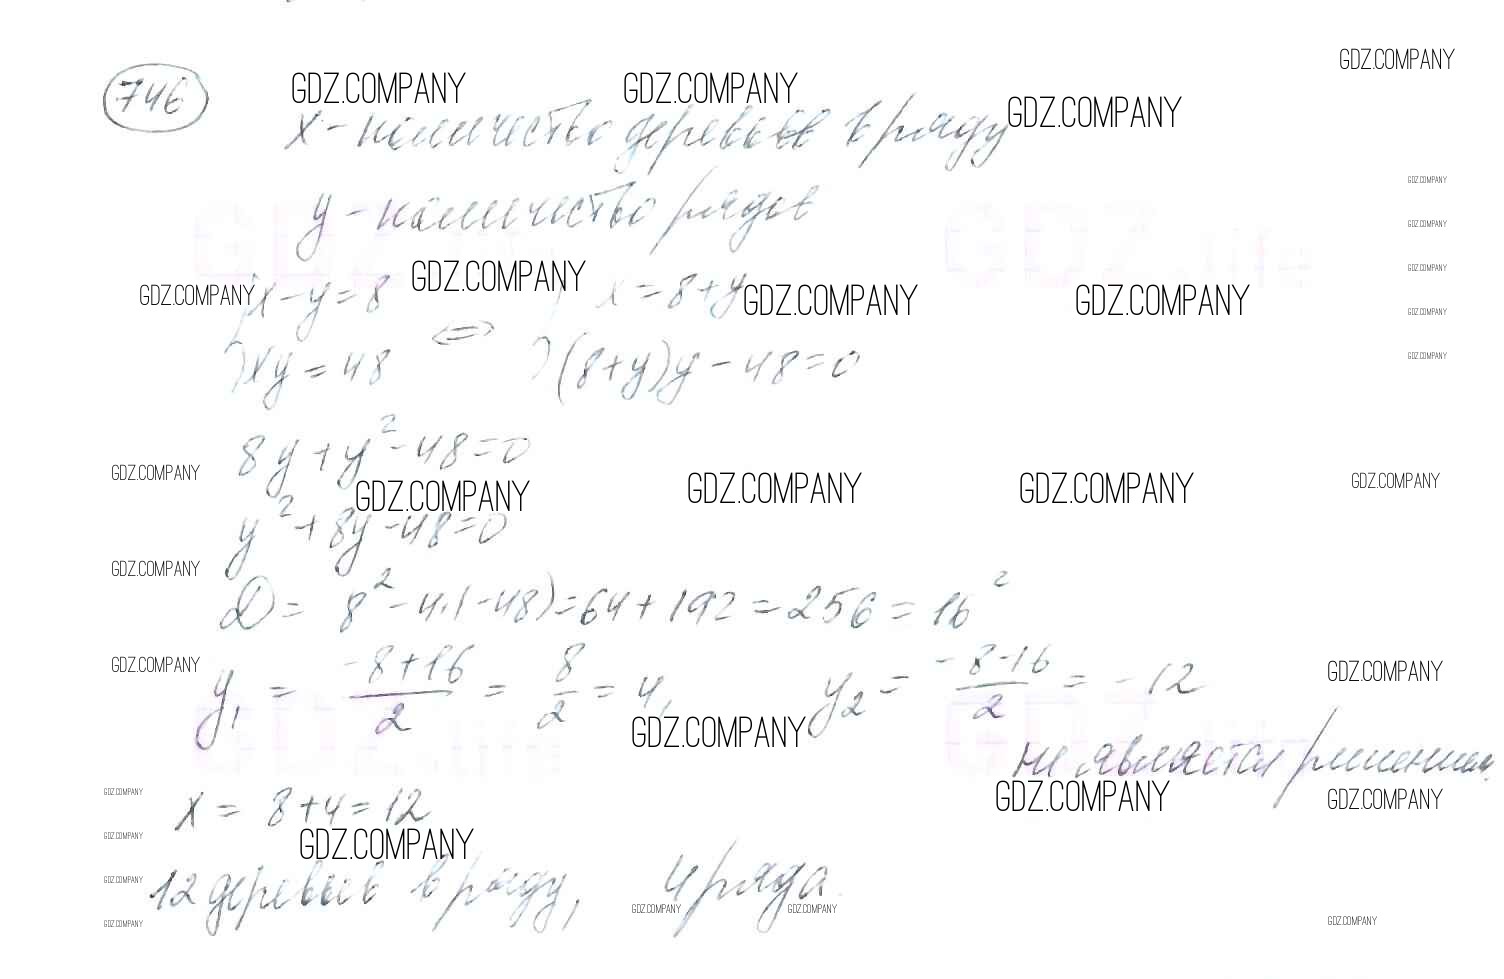 GDZ.COMPANY
746 GDZ.COMPANY GDZ.COMPANY GDZ.COMPANY
x - количество деревьев в ряду
GDZ.COMPANY
y - количество рядов
GDZ.life GDZ.life
GDZ.COMPANY
GDZ.COMPANY
GDZ.COMPANY x - y = 8 GDZ.COMPANY x = 8 + y GDZ.COMPANY GDZ.COMPANY
GDZ.COMPANY
xy = 48 <=> (8 + y)y - 48 = 0
GDZ.COMPANY
8y + y² - 48 = 0
GDZ.COMPANY GDZ.COMPANY GDZ.COMPANY GDZ.COMPANY GDZ.COMPANY
y² + 8y - 48 = 0
GDZ.COMPANY
D = 8² - 4·(-48) = 64 + 192 = 256 = 16²
GDZ.COMPANY GDZ.COMPANY
y₁ = (-8+16)/2 = 8/2 = 4, y₂ = (-8-16)/2 = -12
GDZ.life GDZ.COMPANY GDZ.life
не является решением.
GDZ.COMPANY GDZ.COMPANY GDZ.COMPANY
x = 8 + 4 = 12
GDZ.COMPANY GDZ.COMPANY
12 деревьев в ряду, 4 ряда.
GDZ.COMPANY
GDZ.COMPANY GDZ.COMPANY GDZ.COMPANY GDZ.COMPANY